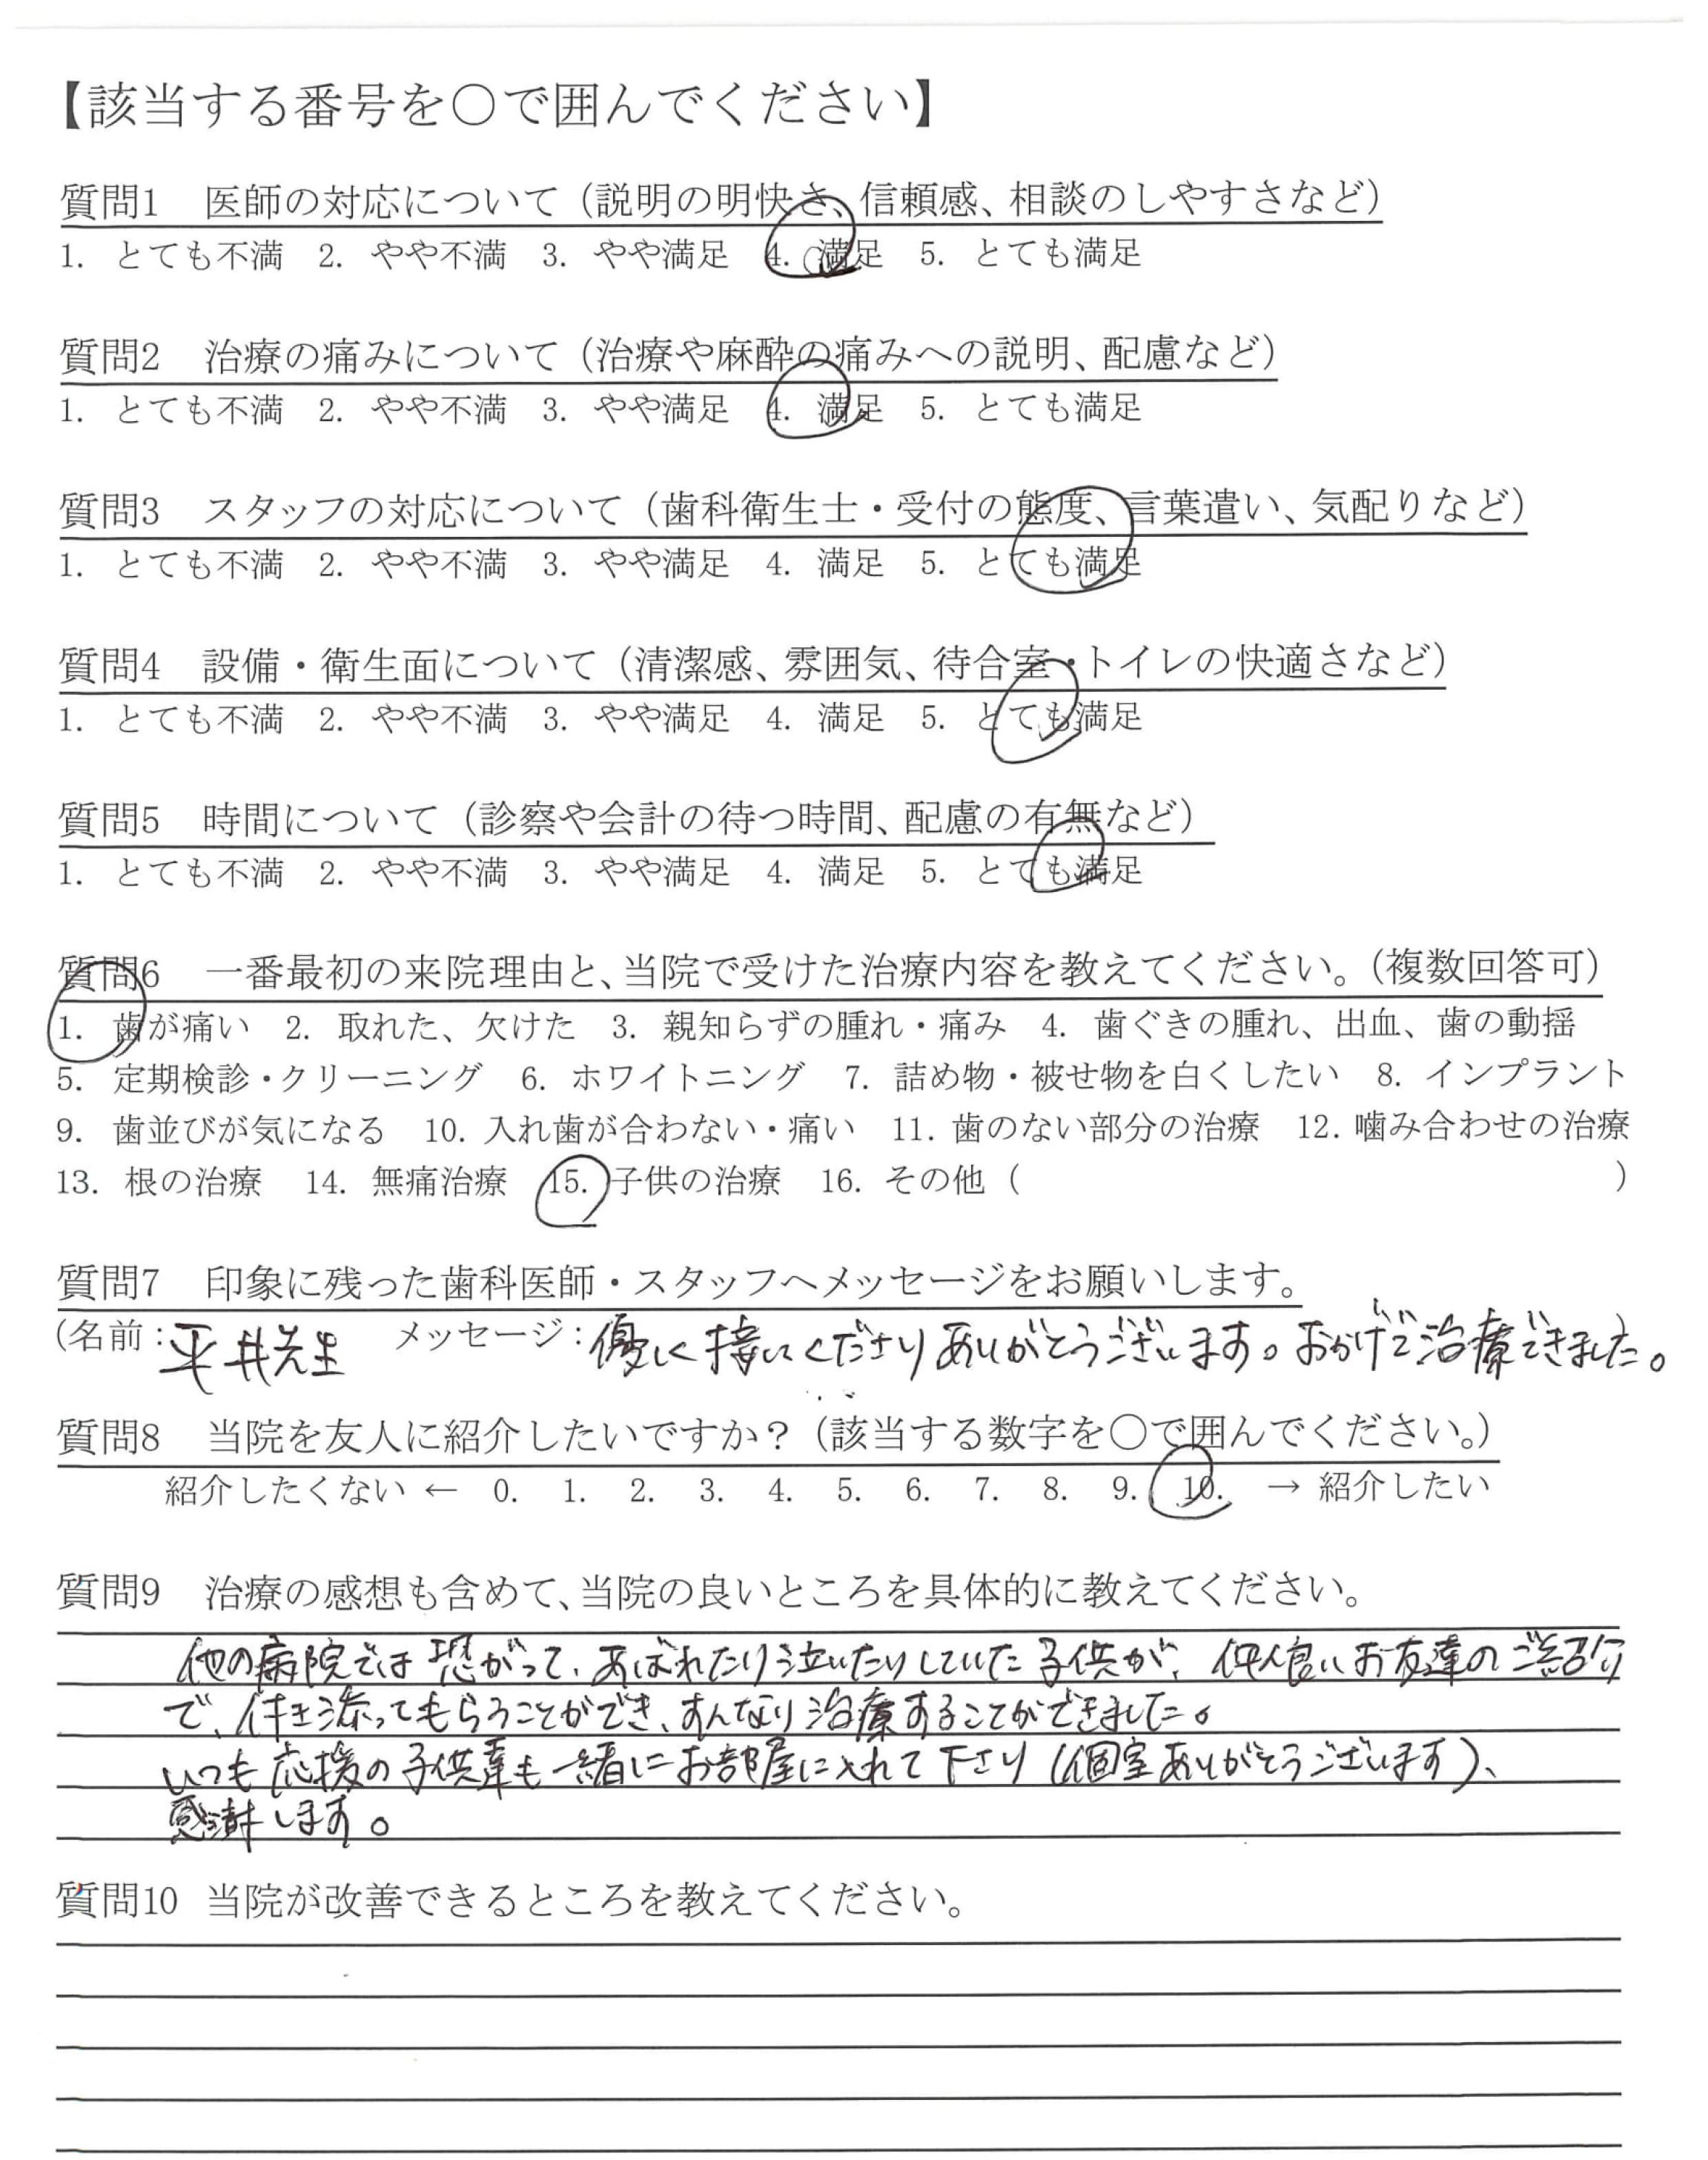 【該当する番号を〇で囲んでください】
質問1　医師の対応について（説明の明快さ、信頼感、相談のしやすさなど）
1. とても不満　2. やや不満　3. やや満足　4. 満足　5. とても満足
質問2　治療の痛みについて（治療や麻酔の痛みへの説明、配慮など）
1. とても不満　2. やや不満　3. やや満足　4. 満足　5. とても満足
質問3　スタッフの対応について（歯科衛生士・受付の態度、言葉遣い、気配りなど）
1. とても不満　2. やや不満　3. やや満足　4. 満足　5. とても満足
質問4　設備・衛生面について（清潔感、雰囲気、待合室・トイレの快適さなど）
1. とても不満　2. やや不満　3. やや満足　4. 満足　5. とても満足
質問5　時間について（診察や会計の待つ時間、配慮の有無など）
1. とても不満　2. やや不満　3. やや満足　4. 満足　5. とても満足
質問6　一番最初の来院理由と、当院で受けた治療内容を教えてください。（複数回答可）
1. 歯が痛い　2. 取れた、欠けた　3. 親知らずの腫れ・痛み　4. 歯ぐきの腫れ、出血、歯の動揺
5. 定期検診・クリーニング　6. ホワイトニング　7. 詰め物・被せ物を白くしたい　8. インプラント
9. 歯並びが気になる　10. 入れ歯が合わない・痛い　11. 歯のない部分の治療　12. 噛み合わせの治療
13. 根の治療　14. 無痛治療　15. 子供の治療　16. その他（　）
質問7　印象に残った歯科医師・スタッフへメッセージをお願いします。
（名前：平井先生　メッセージ：優しく接してくださりありがとうございます。おかげで治療できました。
質問8　当院を友人に紹介したいですか？（該当する数字を〇で囲んでください。）
紹介したくない ← 0. 1. 2. 3. 4. 5. 6. 7. 8. 9. 10. → 紹介したい
質問9　治療の感想も含めて、当院の良いところを具体的に教えてください。
他の病院では恐がって、あばれたり泣いたりしていた子供が、仲良いお友達のご紹介
で、付き添ってもらうことができ、すんなり治療することができました。
いつも応援の子供達も一緒にお部屋に入れて下さり（個室ありがとうございます）、
感謝します。
質問10　当院が改善できるところを教えてください。